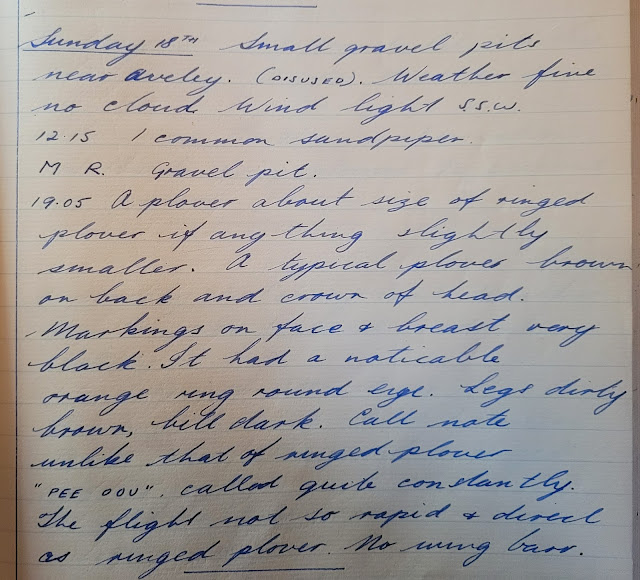 Sunday 18TH Small gravel pits
near aveley. (DISUSED). Weather fine
no cloud. Wind light S.S.W.
12.15 1 common sandpiper.
M R. Gravel pit.
19.05 A plover about size of ringed
plover if anything slightly
smaller. A typical plover brown
on back and crown of head.
Markings on face & breast very
black. It had a noticable
orange ring round eye. Legs dirty
brown, bill dark. Call note
unlike that of ringed plover
"PEE OOU". called quite constantly.
The flight not so rapid & direct
as ringed plover. No wing barr.